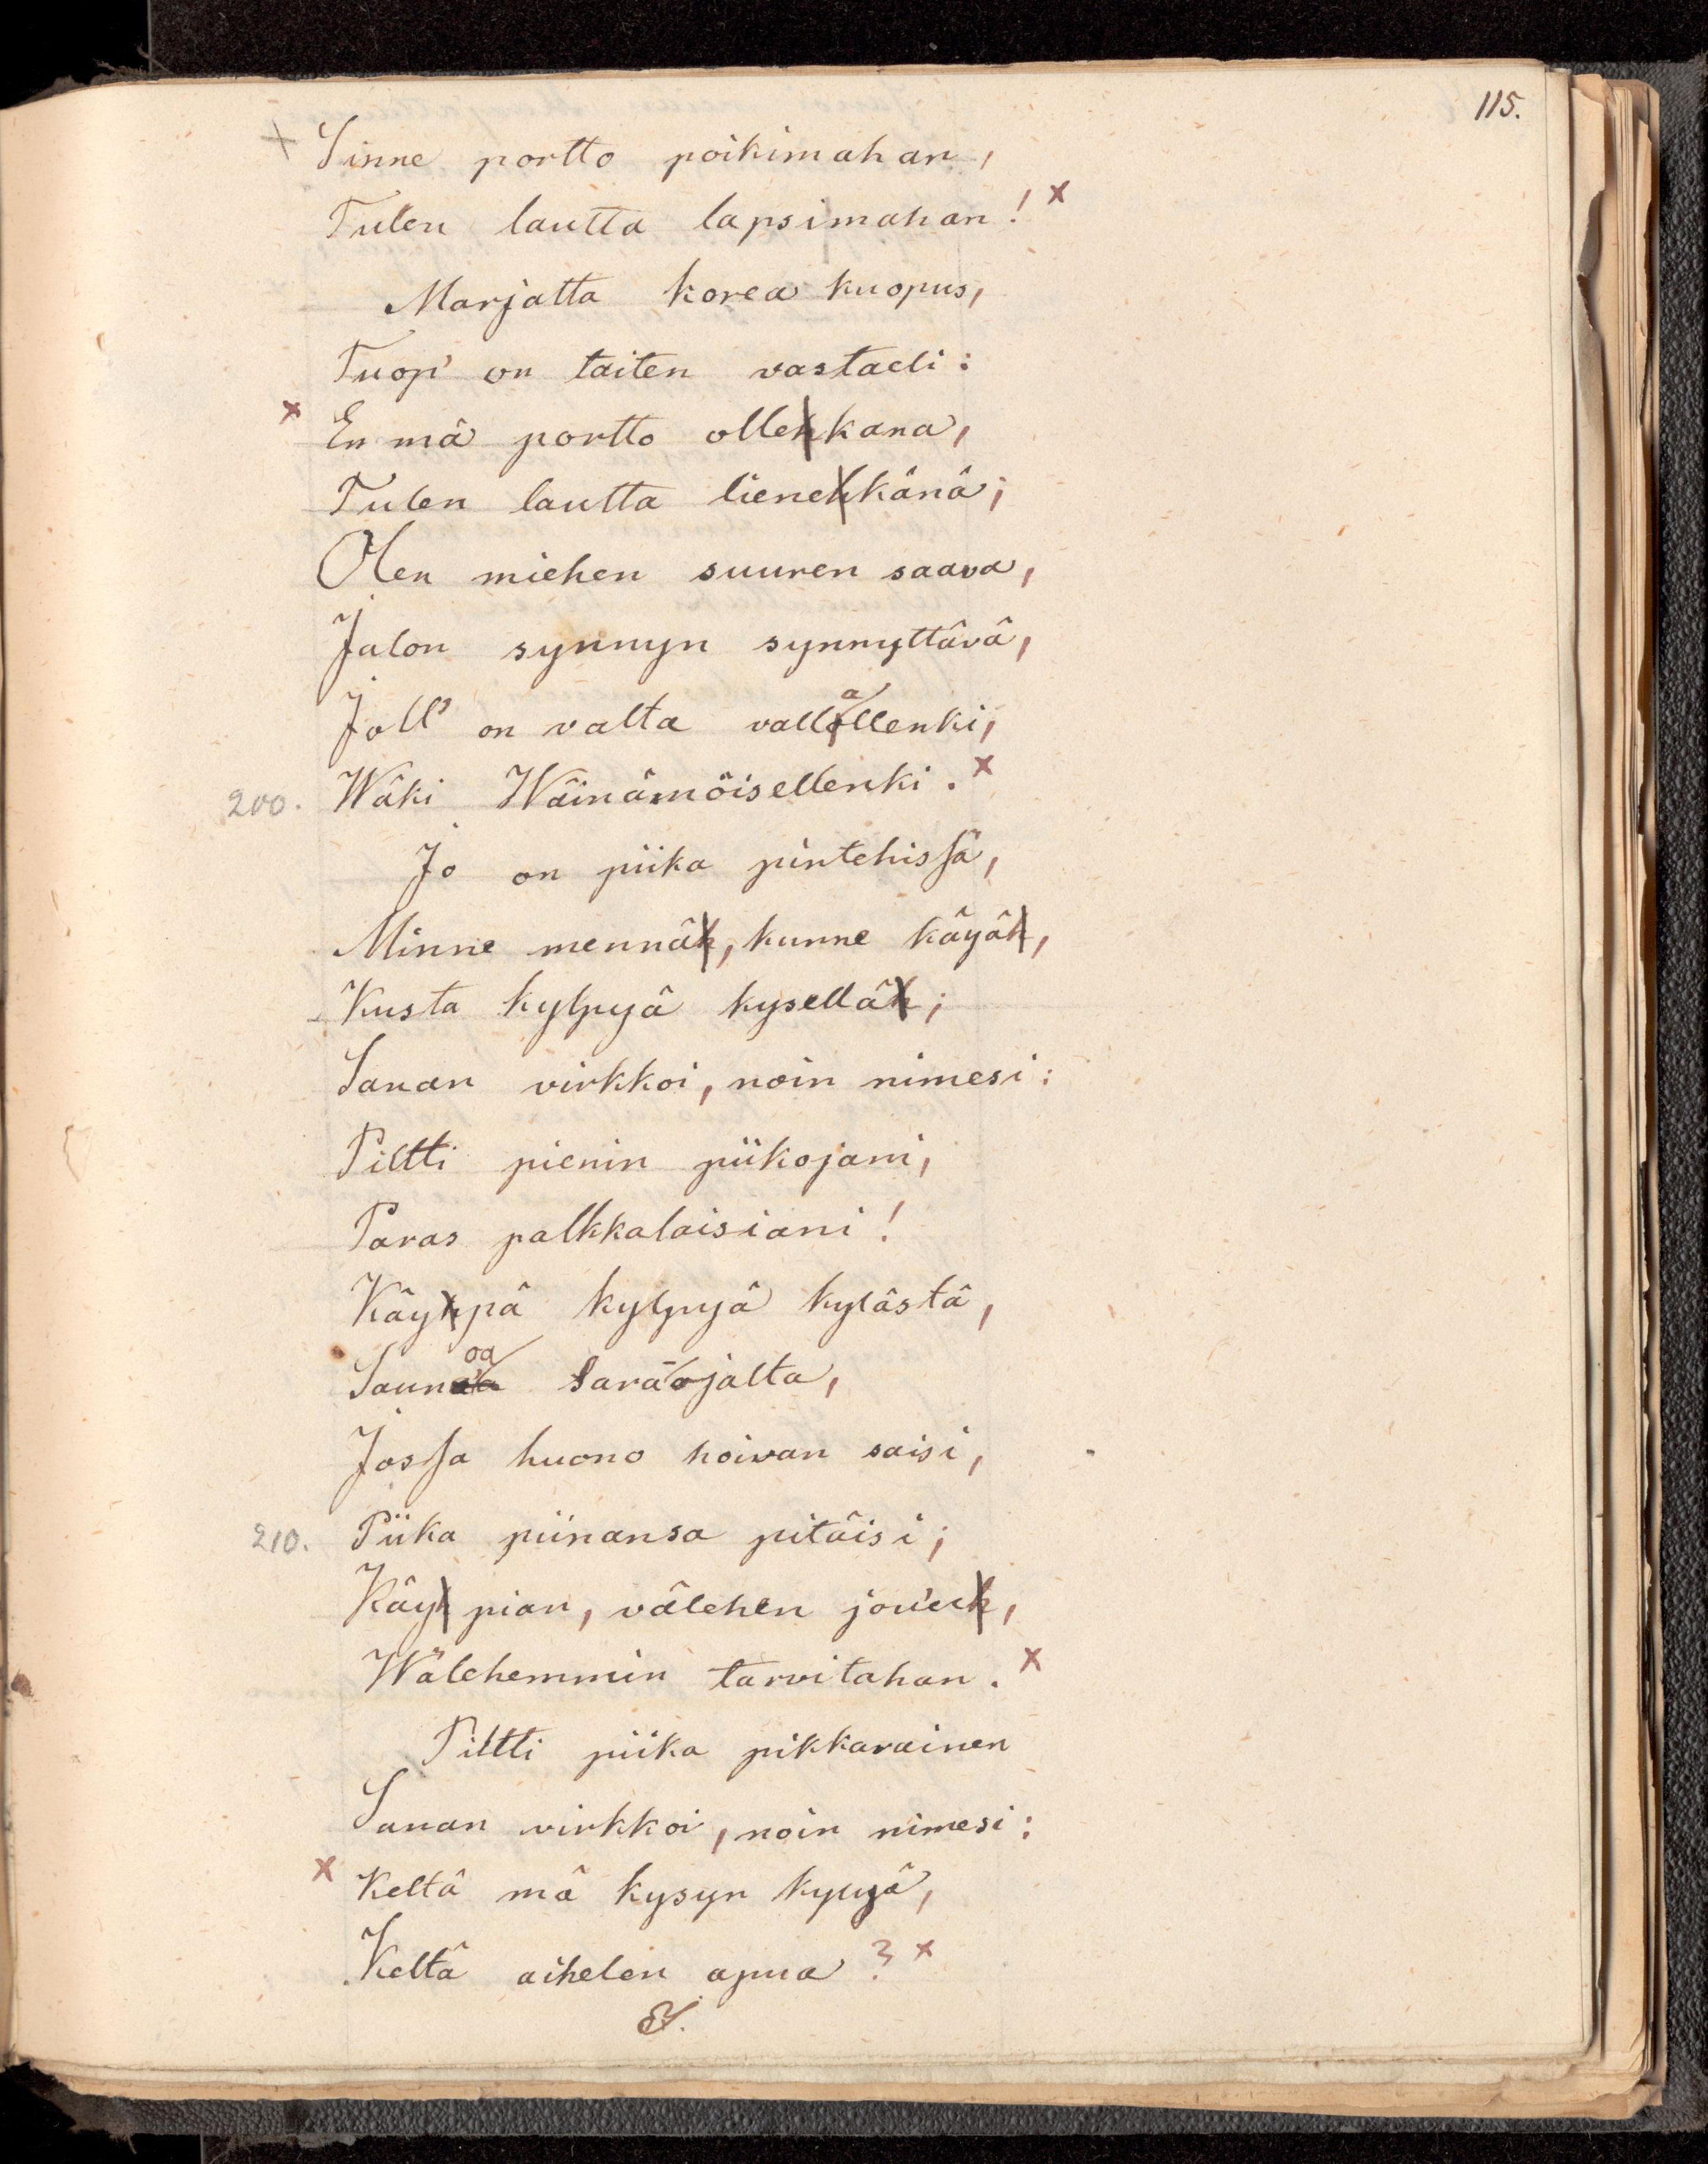 115.
+ Sinne portto poikimahan,
Tulen lautta lapsimahan! x
Marjatta korea kuopus,
Tuop' on taiten vastaeli:
x En mä portto ollekkana,
Tulen lautta lienekkänä;
Olen miehen suuren saava,
Jalon synnyn synnyttävä,
a
Joll' on valta vallollenki,
200. Wäki Wäinämöisellenki. x
Jo on piika pintehissä,
Minne mennäk, kunne käyäk,
Kusta kylpyä kyselläk;
Sanan virkkoi, noin nimesi:
Piltti pienin piikojani,
Paras palkkalaisiani!
Käyhpä kylpyä kylästä,
oa
Saunaa Saraojalta,
Jossa huono hoivan saisi,
210. Piika piinansa pitäisi;
Käyk pian, välehen jou'uk,
Wälehemmin tarvitahan. x
Piltti piika pikkarainen
Sanan virkkoi, noin nimesi:
x Keltä mä kysyn kylyä,
Keltä aihelen apua? x